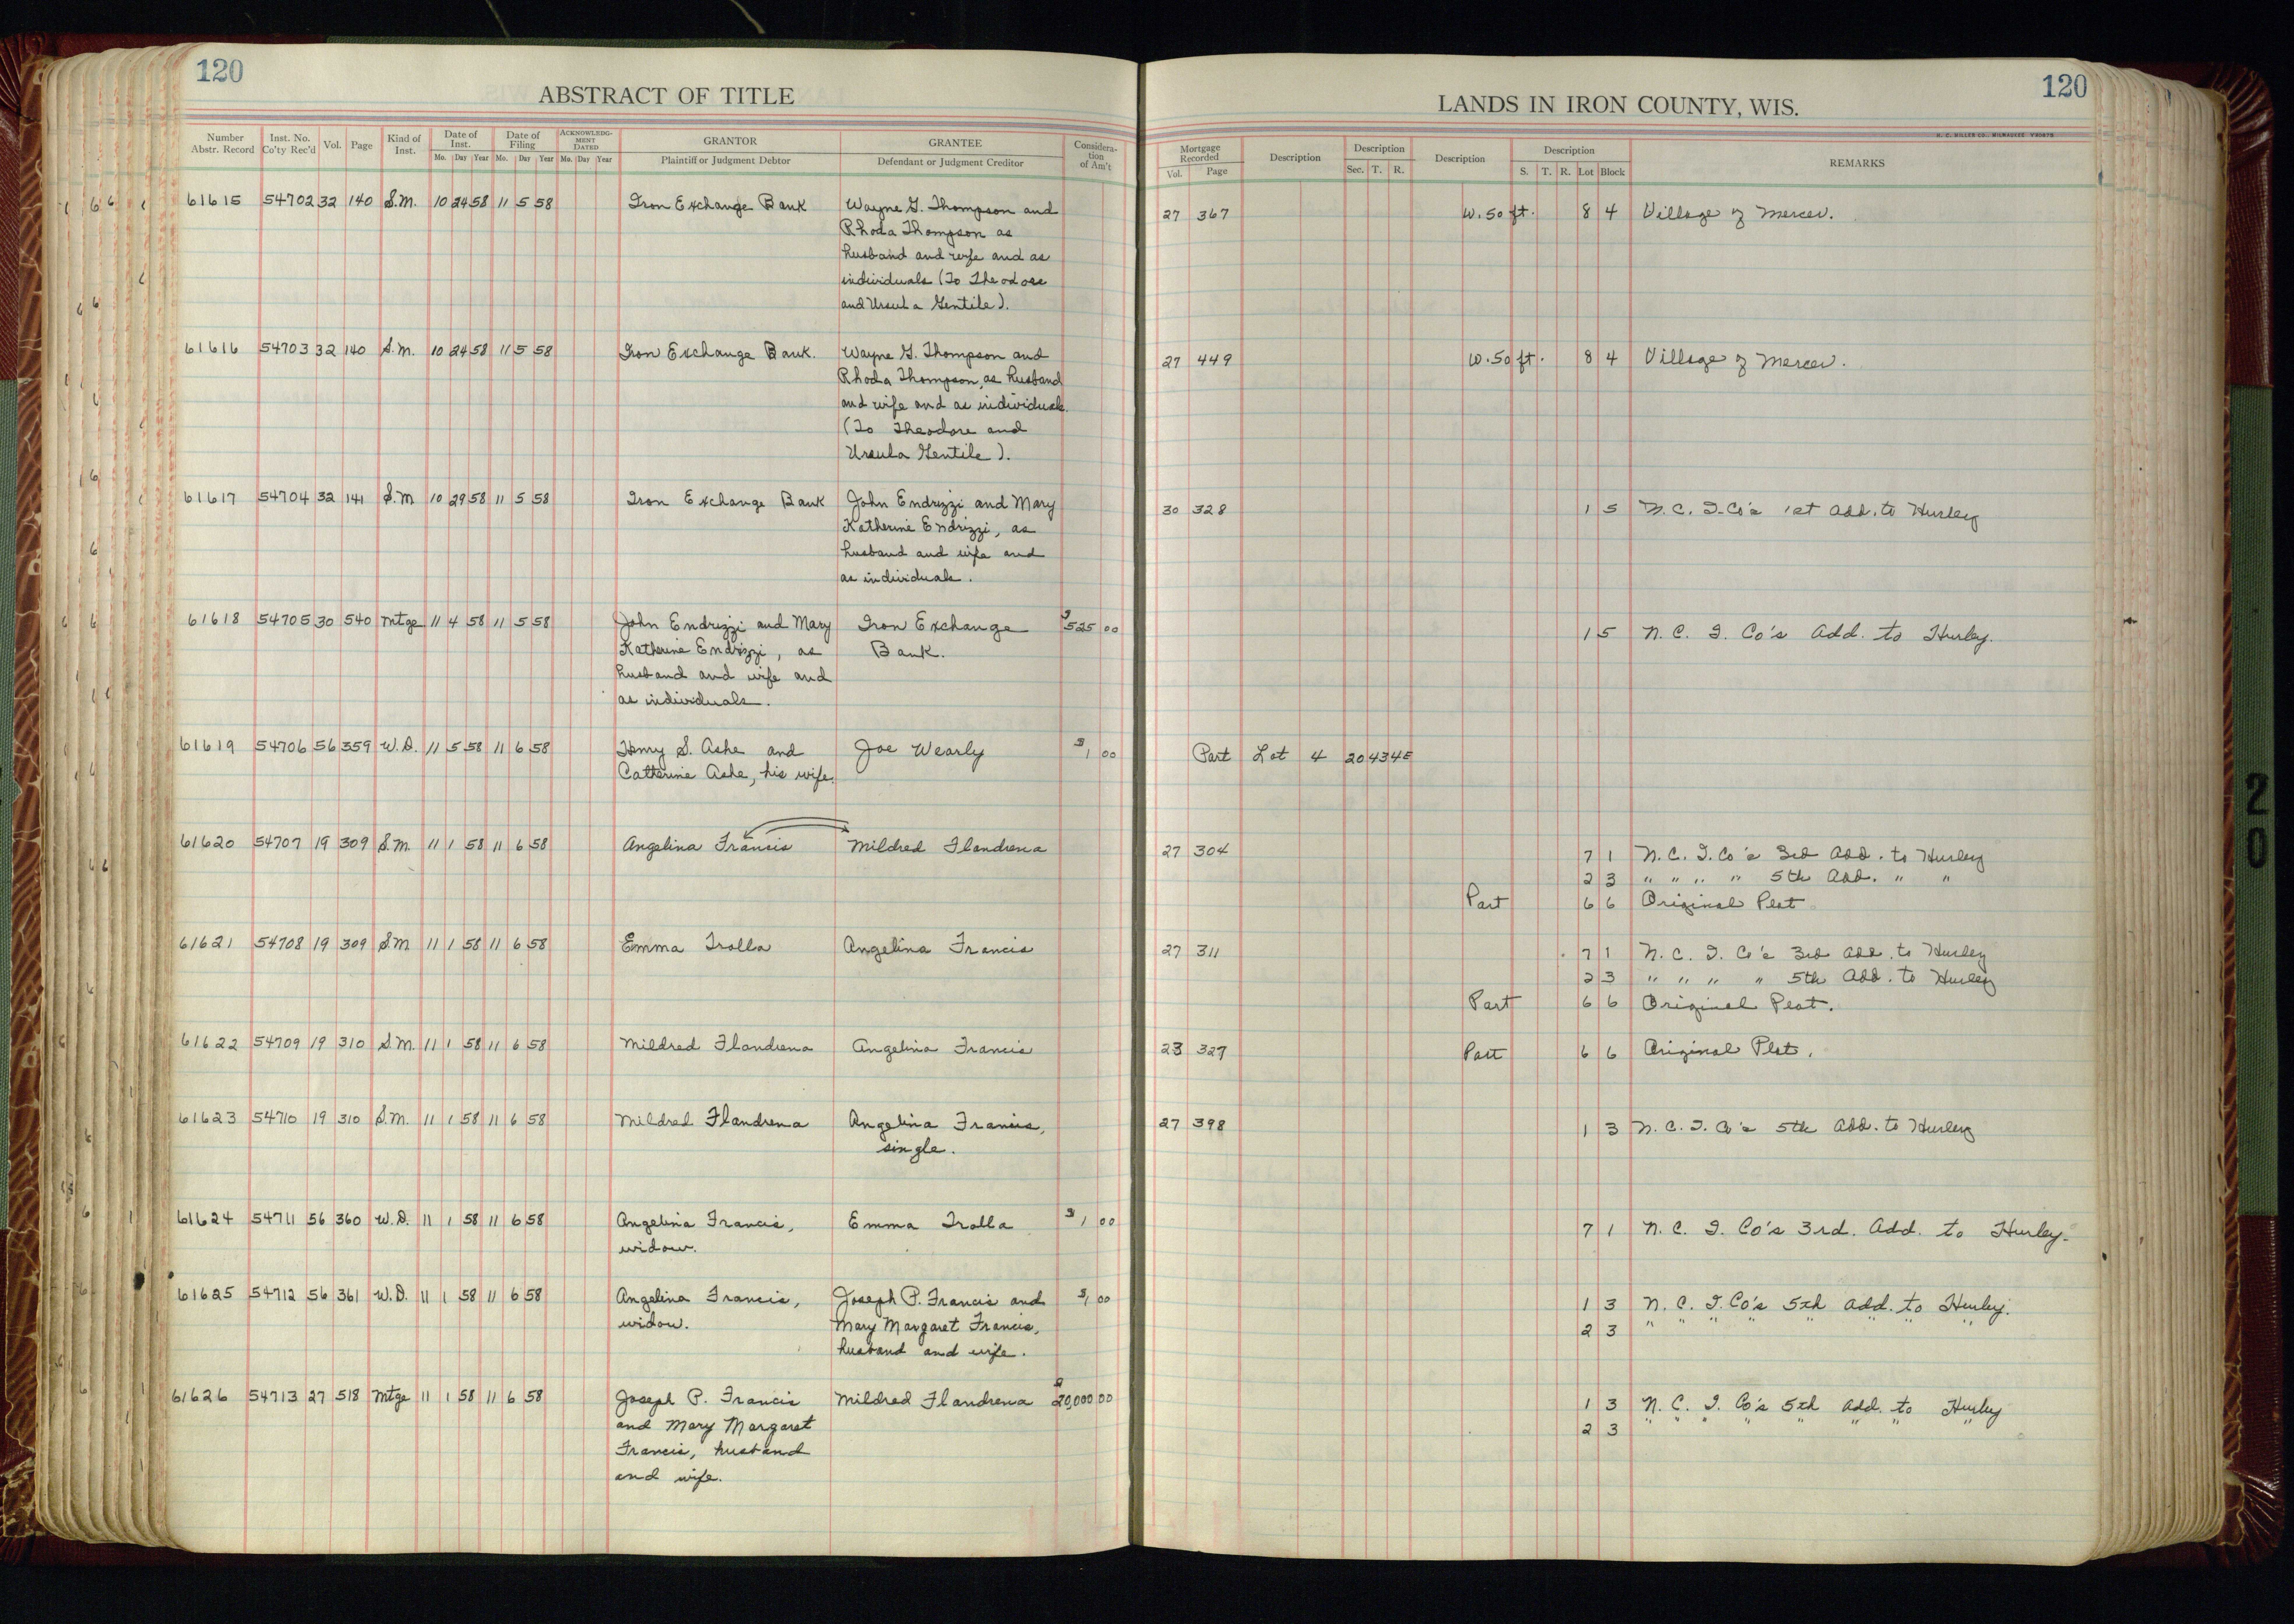 120
ABSTRACT OF TITLE
Number Abstr. Record | Inst. No. Co'ty Rec'd | Vol. | Page | Kind of Inst. | Date of Inst. Mo. Day Year | Date of Filing Mo. Day Year | ACKNOWLEDGMENT DATED Mo. Day Year | GRANTOR Plaintiff or Judgment Debtor | GRANTEE Defendant or Judgment Creditor | Consideration of Am't
61615 54702 32 140 S.M. 10 24 58 11 5 58 Iron Exchange Bank Wayne G. Thompson and
Rhoda Thompson as
husband and wife and as
individuals (To Theodore
and Ursula Gentile).
61616 54703 32 140 S.M. 10 24 58 11 5 58 Iron Exchange Bank. Wayne G. Thompson and
Rhoda Thompson, as husband
and wife and as individuals.
(To Theodore and
Ursula Gentile).
61617 54704 32 141 S.M 10 29 58 11 5 58 Iron Exchange Bank John Endrizzi and Mary
Katherine Endrizzi, as
husband and wife and
as individuals.
61618 54705 30 540 Mtge 11 4 58 11 5 58 John Endrizzi and Mary Iron Exchange $525 00
Katherine Endrizzi, as Bank.
husband and wife and
as individuals.
61619 54706 56 359 W.D. 11 5 58 11 6 58 Henry S. Ashe and Joe Wearly $1 00
Catherine Ashe, his wife.
61620 54707 19 309 S.M. 11 1 58 11 6 58 Angelina Francis Mildred Flandrena
61621 54708 19 309 S.M 11 1 58 11 6 58 Emma Trolla Angelina Francis
61622 54709 19 310 S.M. 11 1 58 11 6 58 Mildred Flandrena Angelina Francis
61623 54710 19 310 S.M. 11 1 58 11 6 58 Mildred Flandrena Angelina Francis,
single.
61624 54711 56 360 W.D. 11 1 58 11 6 58 Angelina Francis, Emma Trolla $1 00
widow.
61625 54712 56 361 W.D. 11 1 58 11 6 58 Angelina Francis, Joseph P. Francis and $1 00
widow. Mary Margaret Francis,
husband and wife.
61626 54713 27 518 Mtge 11 1 58 11 6 58 Joseph P. Francis Mildred Flandrena $20,000 00
and Mary Margaret
Francis, husband
and wife.
120
LANDS IN IRON COUNTY, WIS.
H. C. MILLER CO., MILWAUKEE
Mortgage Recorded Vol. Page | Description | Description Sec. T. R. | Description | Description S. T. R. Lot Block | REMARKS
27 367 W. 50 ft. 8 4 Village of Mercer.
27 449 W. 50 ft. 8 4 Village of Mercer.
30 328 1 5 N. C. I. Co's 1st Add. to Hurley
1 5 N. C. I. Co's Add. to Hurley.
Part Lot 4 20 43 4E
27 304 7 1 N. C. I. Co's 3rd Add. to Hurley
2 3 " " " " 5th Add. " "
Part 6 6 Original Plat
27 311 7 1 N. C. I. Co's 3rd Add. to Hurley
2 3 " " " " 5th Add. to Hurley
Part 6 6 Original Plat.
23 327 Part 6 6 Original Plat.
27 398 1 3 N. C. I. Co's 5th Add. to Hurley
7 1 N. C. I. Co's 3rd. Add. to Hurley.
1 3 N. C. I. Co's 5th Add. to Hurley.
2 3 " " " " " " " "
1 3 N. C. I. Co's 5th Add. to Hurley
2 3 " " " " " " " "
20